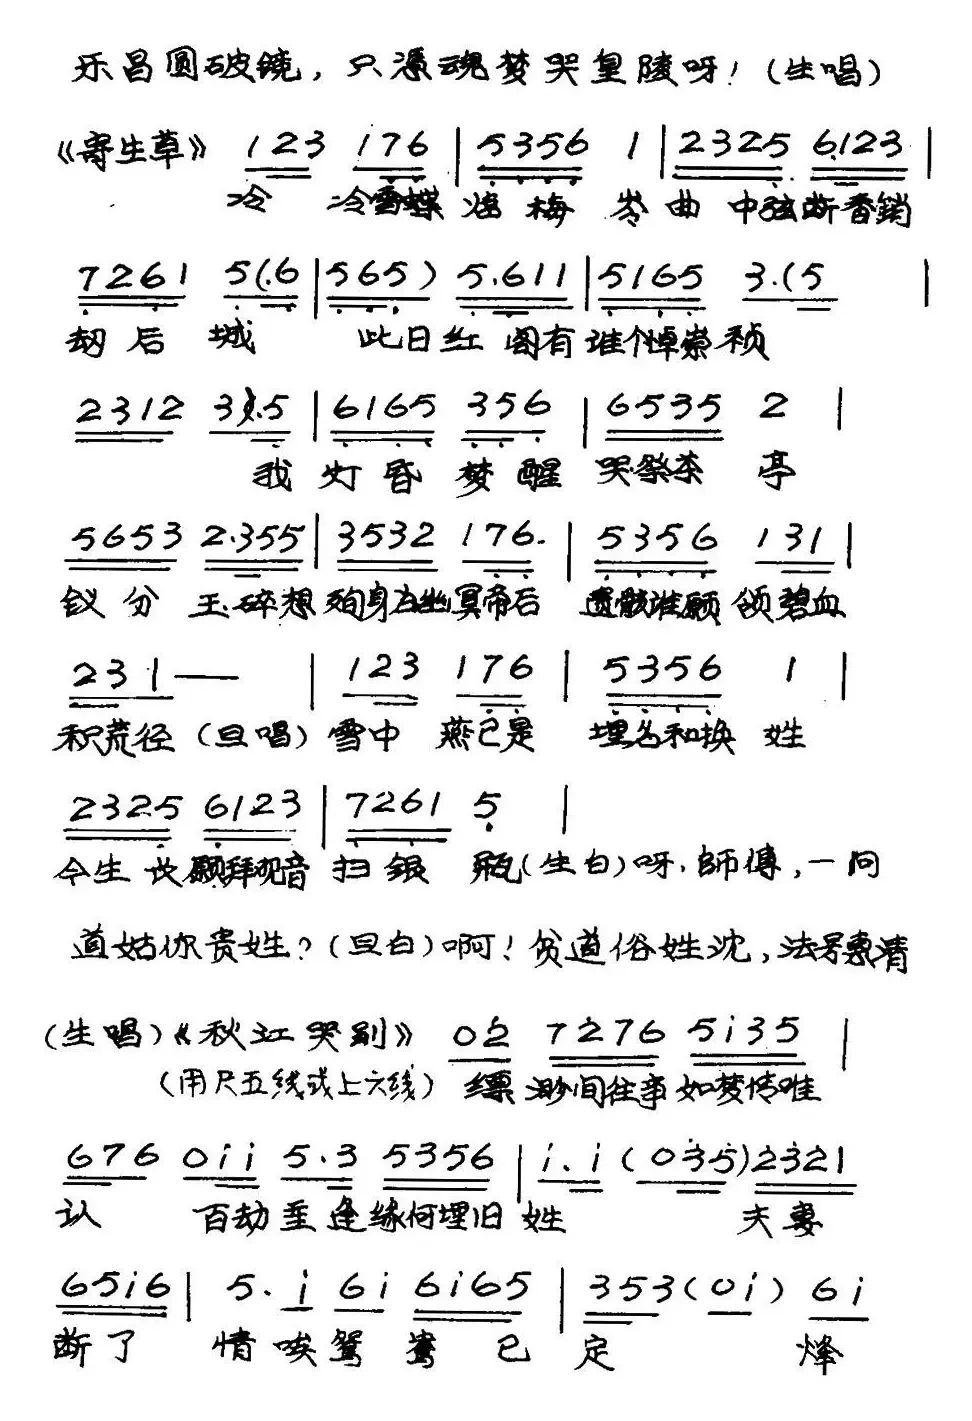 乐昌圆破镜，只凭魂梦哭皇陵呀！(生唱)
《寄生草》 123 176 | 5356 1 | 2325 6123 |
冷 冷雪蝶 梅 岺 曲 中弦断香销
7261 5(.6 | 565) 5.611 | 5165 3.(5 |
劫 后 城 此日红 阁有谁个悼崇祯
2312 3).5 | 6165 356 | 6535 2 |
我 灯 昏 梦 醒 哭祭茶 亭
5653 2.355 | 3532 176. | 5356 131 |
钗 分 玉 碎想 殉身 幽冥帝后 遗骸谁愿 领碧血
231 — | 123 176 | 5356 1 |
积荒径 (旦唱) 雪中 燕已是 埋名和换 姓
2325 6123 | 7261 5 |
今生 长愿拜观音 扫 银 瓶(生白)呀.師傅，一问
道姑你贵姓？(旦白)啊！贫道俗姓沈，法号慧清
(生唱)《秋江哭别》 02 7276 5i35 |
(用尺五线或上六线) 缥 渺间往事 如梦情难
676 0ii 5.3 5356 | i.i (035)2321
认 百劫重 逢缘何埋旧 姓 夫妻
65i6 | 5.i 6i 6i65 | 353(0i) 6i
断了 情唉鸳 鸯 已 定 烽